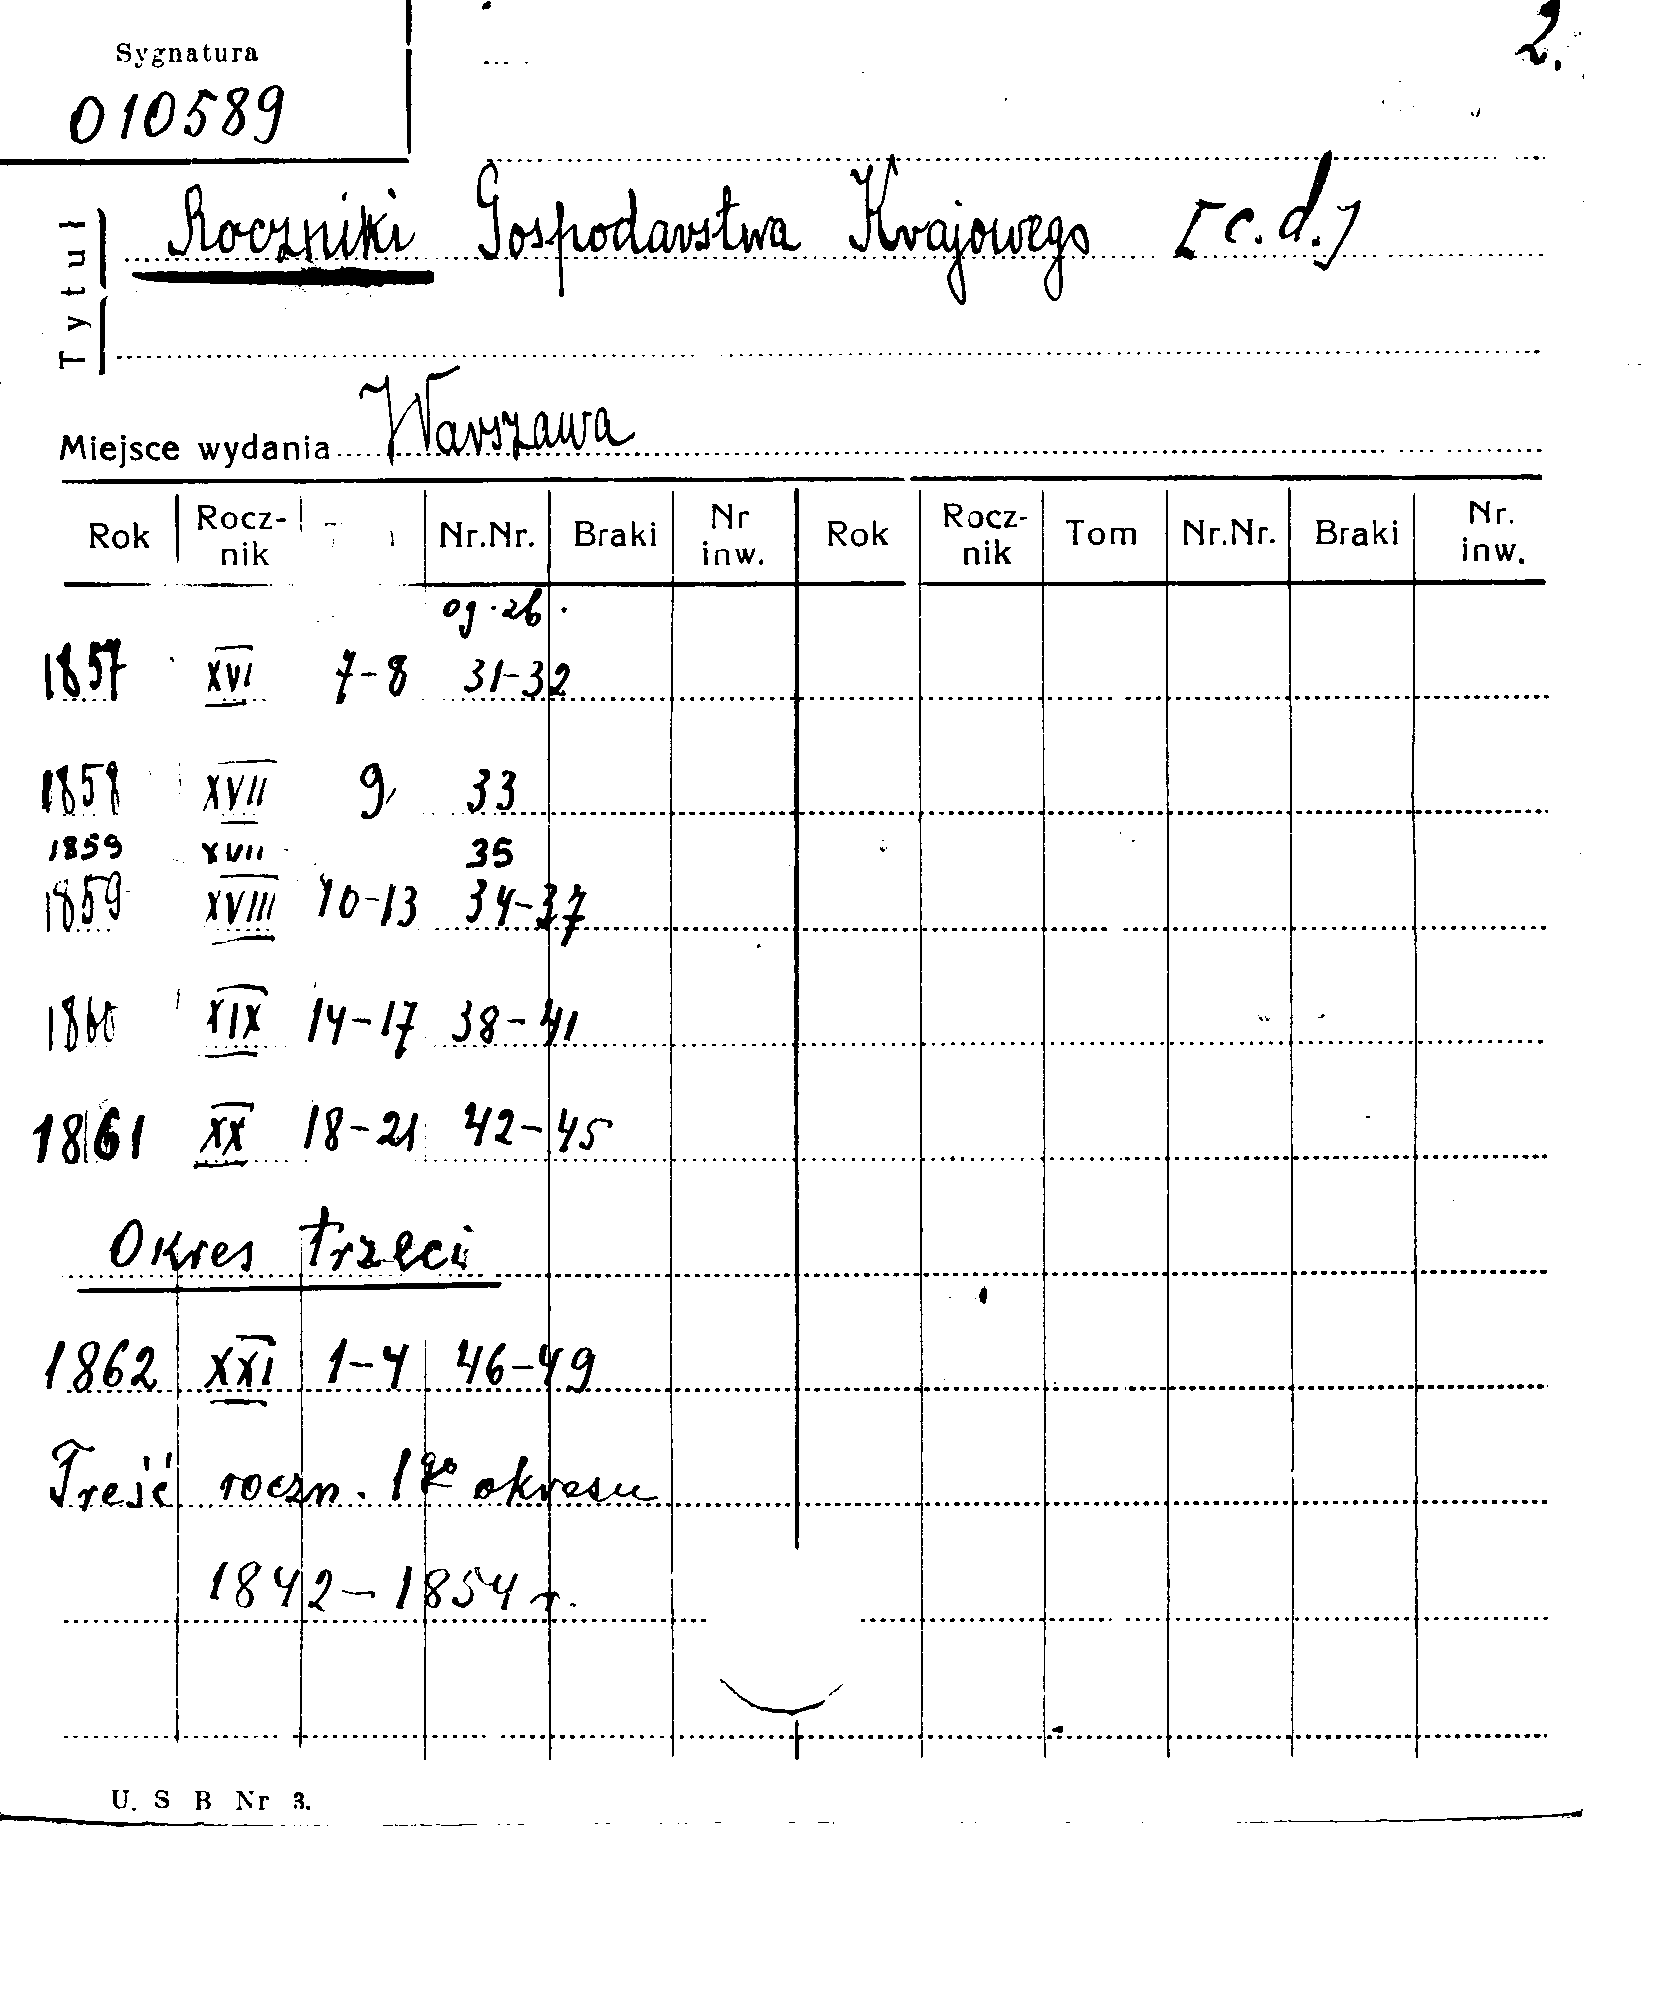 2.
Sygnatura
010589
Tytuł
Roczniki Gospodarstwa Krajowego [c.d.]
Miejsce wydania Warszawa
Rok Rocz-nik Nr.Nr. Braki Nr inw. Rok Rocz-nik Tom Nr.Nr. Braki Nr. inw.
og. zb.
1857 XVI 7-8 31-32
1858 XVII 9 33
1859 XVII 35
1859 XVIII 10-13 34-37
1860 XIX 14-17 38-41
1861 XX 18-21 42-45
Okres trzeci
1862 XXI 1-4 46-49
Treść roczn. 1go okresu
1842-1854 r.
U. S B Nr 3.